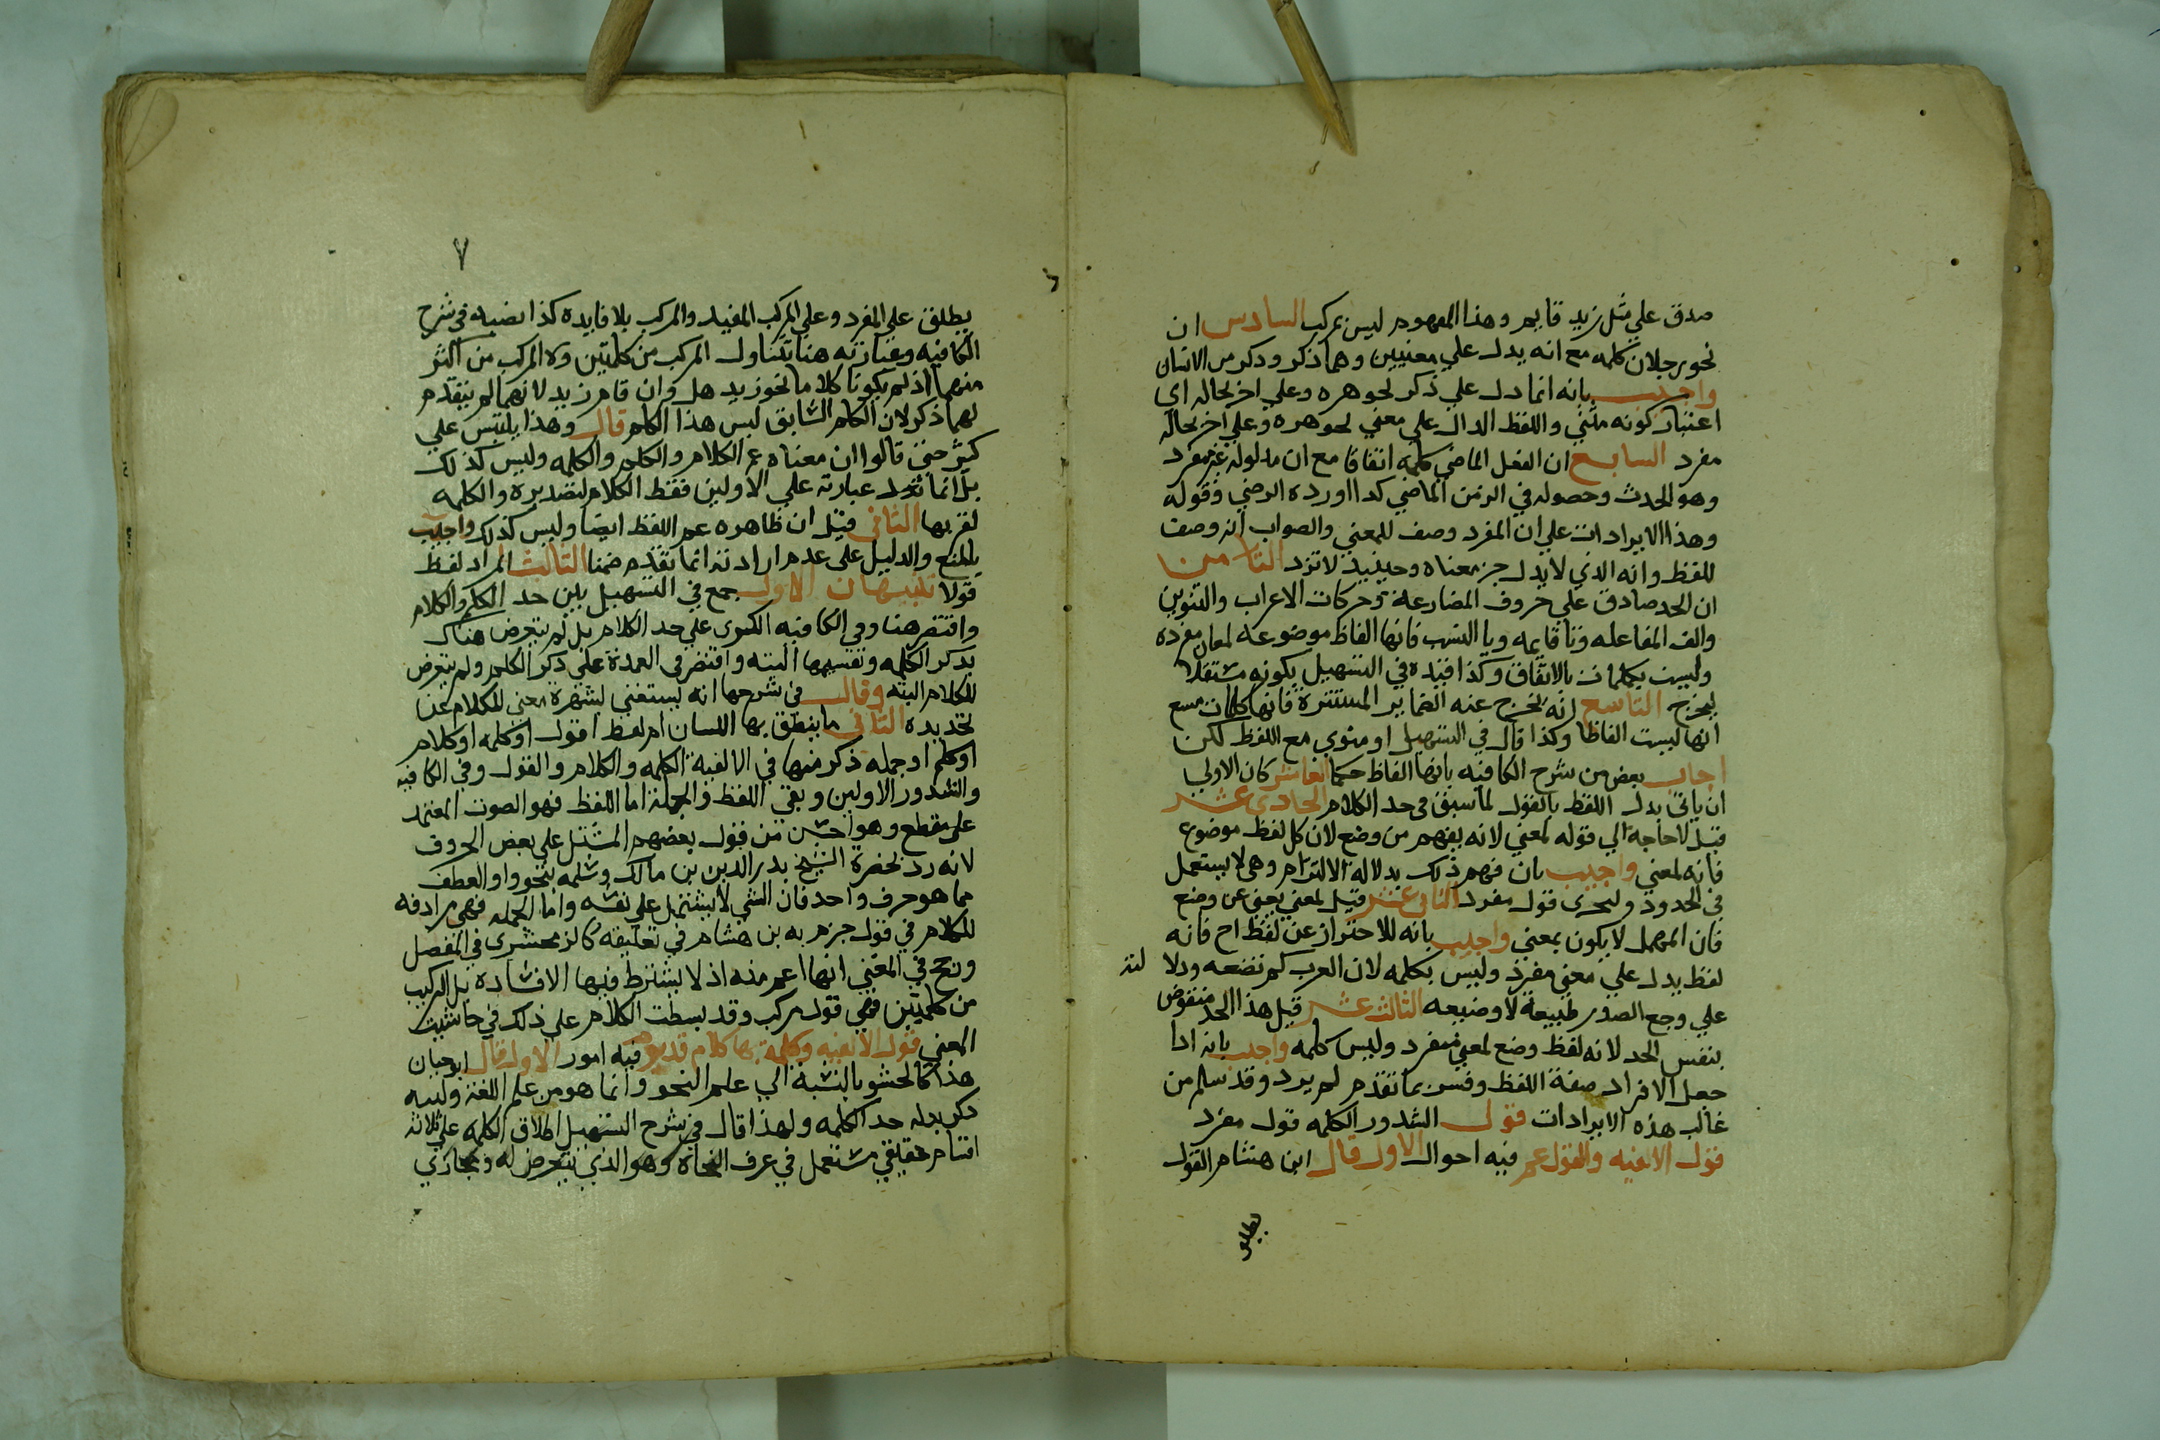 صدق علي مثل زيد قايم وهذا المفهوم ليس بمركب السادس ان
نحو رجلان كلمه مع انه يدل علي معنيين وهما ذكر وذكر من الانسان
واجيب بانه انما دل علي ذكر لجوهره وعلي اخر لحاله اي
اعتبار كونه مثني واللفظ الدال علي معني لجوهره وعلي اخر لحاله
مفرد السابع ان الفعل الماضي كلمه اتفاقا مع ان مدلوله غير مفرد
وهو الحدث وحصوله في الزمن الماضي كذا اورده الرضي وقوله
وهذا الايرادات علي ان المفرد وصف للمعني والصواب انه وصف
للفظ وانه الذي لا يدل جزء معناه وحينيذ لا ترد الثامن
ان الحد صادق علي حروف المضارعة وحركات الاعراب والتنوين
والف المفاعله وتا قايمه ويا النسب فانها الفاظ موضوعه لمعان مفرده
وليست بكلمات بالاتفاق وكذا قيده في التسهيل بكونه مستقلا
ليخرج التاسع انه يخرج عنه الضماير المستترة فانها كلمات مع
انها ليست الفاظا وكذا قال في التسهيل او منوي مع اللفظ لكن
اجاب بعض من شرح الكافيه بانها الفاظ حكما العاشر كان الاولي
ان ياتي بدل اللفظ بالقول لما سبق في حد الكلام الحادي عشر
قيل لا حاجة الي قوله لمعني لانه يفهم من وضع لان كل لفظ موضوع
فانه لمعني واجيب بان فهم ذلك بدلاله الالتزام وهي لا تستعمل
في الحدود ولتحرى قول مفرد الثاني عشر قيل لمعني يغني عن وضع
فان المهمل لا يكون بمعني واجيب بانه للاحتراز عن لفظ اح فانه
لفظ يدل علي معني مفرد وليس بكلمه لان العرب لم تضعه ودلا
لته
علي وجع الصدر طبيعة لا وضعيه الثالث عشر قيل هذا الحد منقوض
بنفس الحد لانه لفظ وضع لمعني مفرد وليس كلمه واجيب بانه اذا
جعل الافراد صفة اللفظ وفسر بما تقدم لم يرد وقد سلم من
غالب هذه الايرادات قول الشذور الكلمه قول مفرد
قول الالفيه والقول عم فيه احوال الاول قال ابن هشام القول
يطلق
٧
يطلق علي المفرد وعلي المركب المفيد والمركب بلا فايده كذا نصبه في شرح
الكافيه وعبارته هنا تتناول المركب من كلمتين والمركب من اكثر
منهما اذ لم يكونا كلاما نحو زيد هل وان قام زيد لانهما لم يتقدم
لهما ذكر لان الكلم السابق ليس هذا الكلم قال وهذا يلتبس علي
كثير حتي قالوا ان معناه عم الكلام والكلم والكلمه وليس كذلك
بل انما تدل عبارته علي الاولين فقط الكلام لتصديره والكلمه
لقربها الثاني قيل ان ظاهره عم اللفظ ايضا وليس كذلك واجيب
بالمنع والدليل علي عدم ارادته انما تقدم ضمنا الثالث المراد لفظ
قولا تنبيهان الاول جمع في التسهيل بين حد الكلم والكلام
واقتصر هنا وفي الكافيه الكبرى علي حد الكلام بل لم يتعرض هناك
بذكر الكلمه وتقسيمها البته واقتصر في العمدة علي ذكر الكلم ولم يتعرض
للكلام البته وقال في شرحها انه يستغني لشهرة معني الكلام عن
تحديده الثاني ما ينطق بها اللسان ام لفظ او قول او كلمه او كلام
او كلم او جمله ذكر منها في الالفية الكلمه والكلام والقول وفي الكافيه
والشذور الاولين وبقي اللفظ والجملة اما اللفظ فهو الصوت المعتمد
علي مقطع وهو احسن من قول بعضهم المشتمل علي بعض الحروف
لانه رد بحضرة الشيخ بدر الدين بن مالك وسلمه بنحو واو العطف
مما هو حرف واحد فان الشي لا يشتمل علي نفسه واما الجمله فهي مرادفه
للكلام في قول جزم به بن هشام في تعليقه كالزمخشري في المفصل
ورجح في المغني انها اعم منه اذ لا يشترط فيها الافاده بل التركيب
من كلمتين فهي قول مركب وقد بسطت الكلام علي ذلك في حاشيت
المغني قول الالفيه وكلمة بها كلام قد يوم فيه امور الاول قال ابو حيان
هذا كالحشو بالنسبة الي علم النحو وانما هو من علم اللغة وليته
ذكر بدله حد الكلمه ولهذا قال في شرح التسهيل اطلاق الكلمه علي ثلاثة
اقسام حقيقي مستعمل في عرف النحاة وهو الذي نتعرض له ومجازي